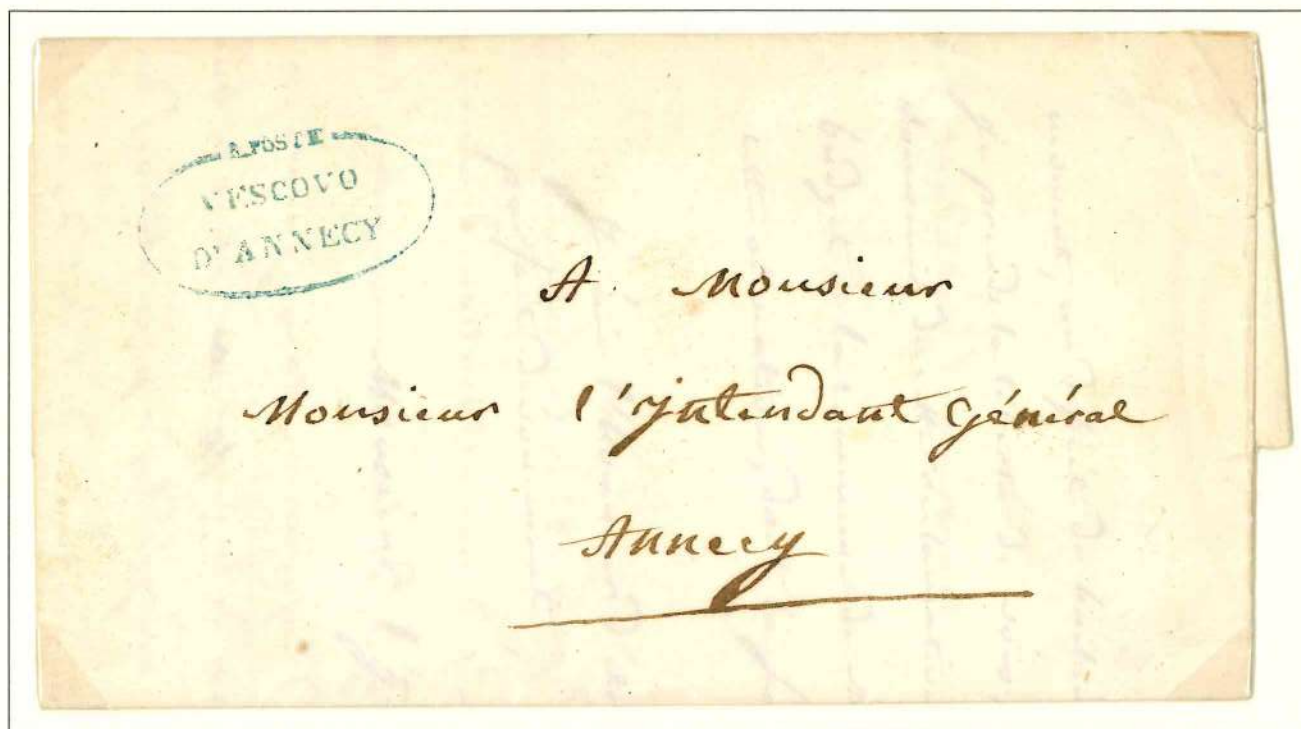 R. POSTE
VESCOVO
D'ANNECY
A Monsieur
Monsieur l'Intendant Général
Annecy